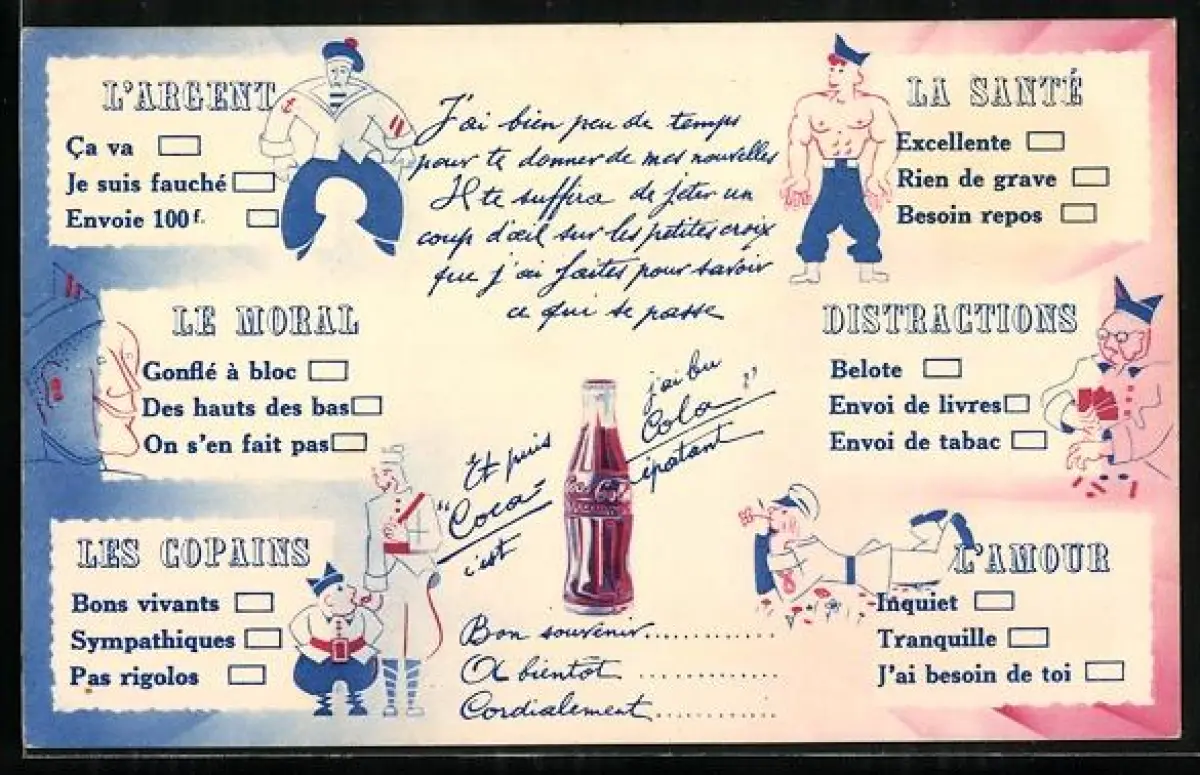 L'ARGENT
Ça va
Je suis fauché
Envoie 100f.
J'ai bien peu de temps
pour te donner de mes nouvelles
Il te suffira de jeter un
coup d'œil sur les petites croix
que j'ai faites pour savoir
ce qui se passe
LA SANTÉ
Excellente
Rien de grave
Besoin repos
LE MORAL
Gonflé à bloc
Des hauts des bas
On s'en fait pas
DISTRACTIONS
Belote
Envoi de livres
Envoi de tabac
Et puis j'ai bu
"Coca-Cola"
c'est épatant
Coca-Cola
LES COPAINS
Bons vivants
Sympathiques
Pas rigolos
Bon souvenir..............
A bientôt ..............
Cordialement..............
L'AMOUR
Inquiet
Tranquille
J'ai besoin de toi